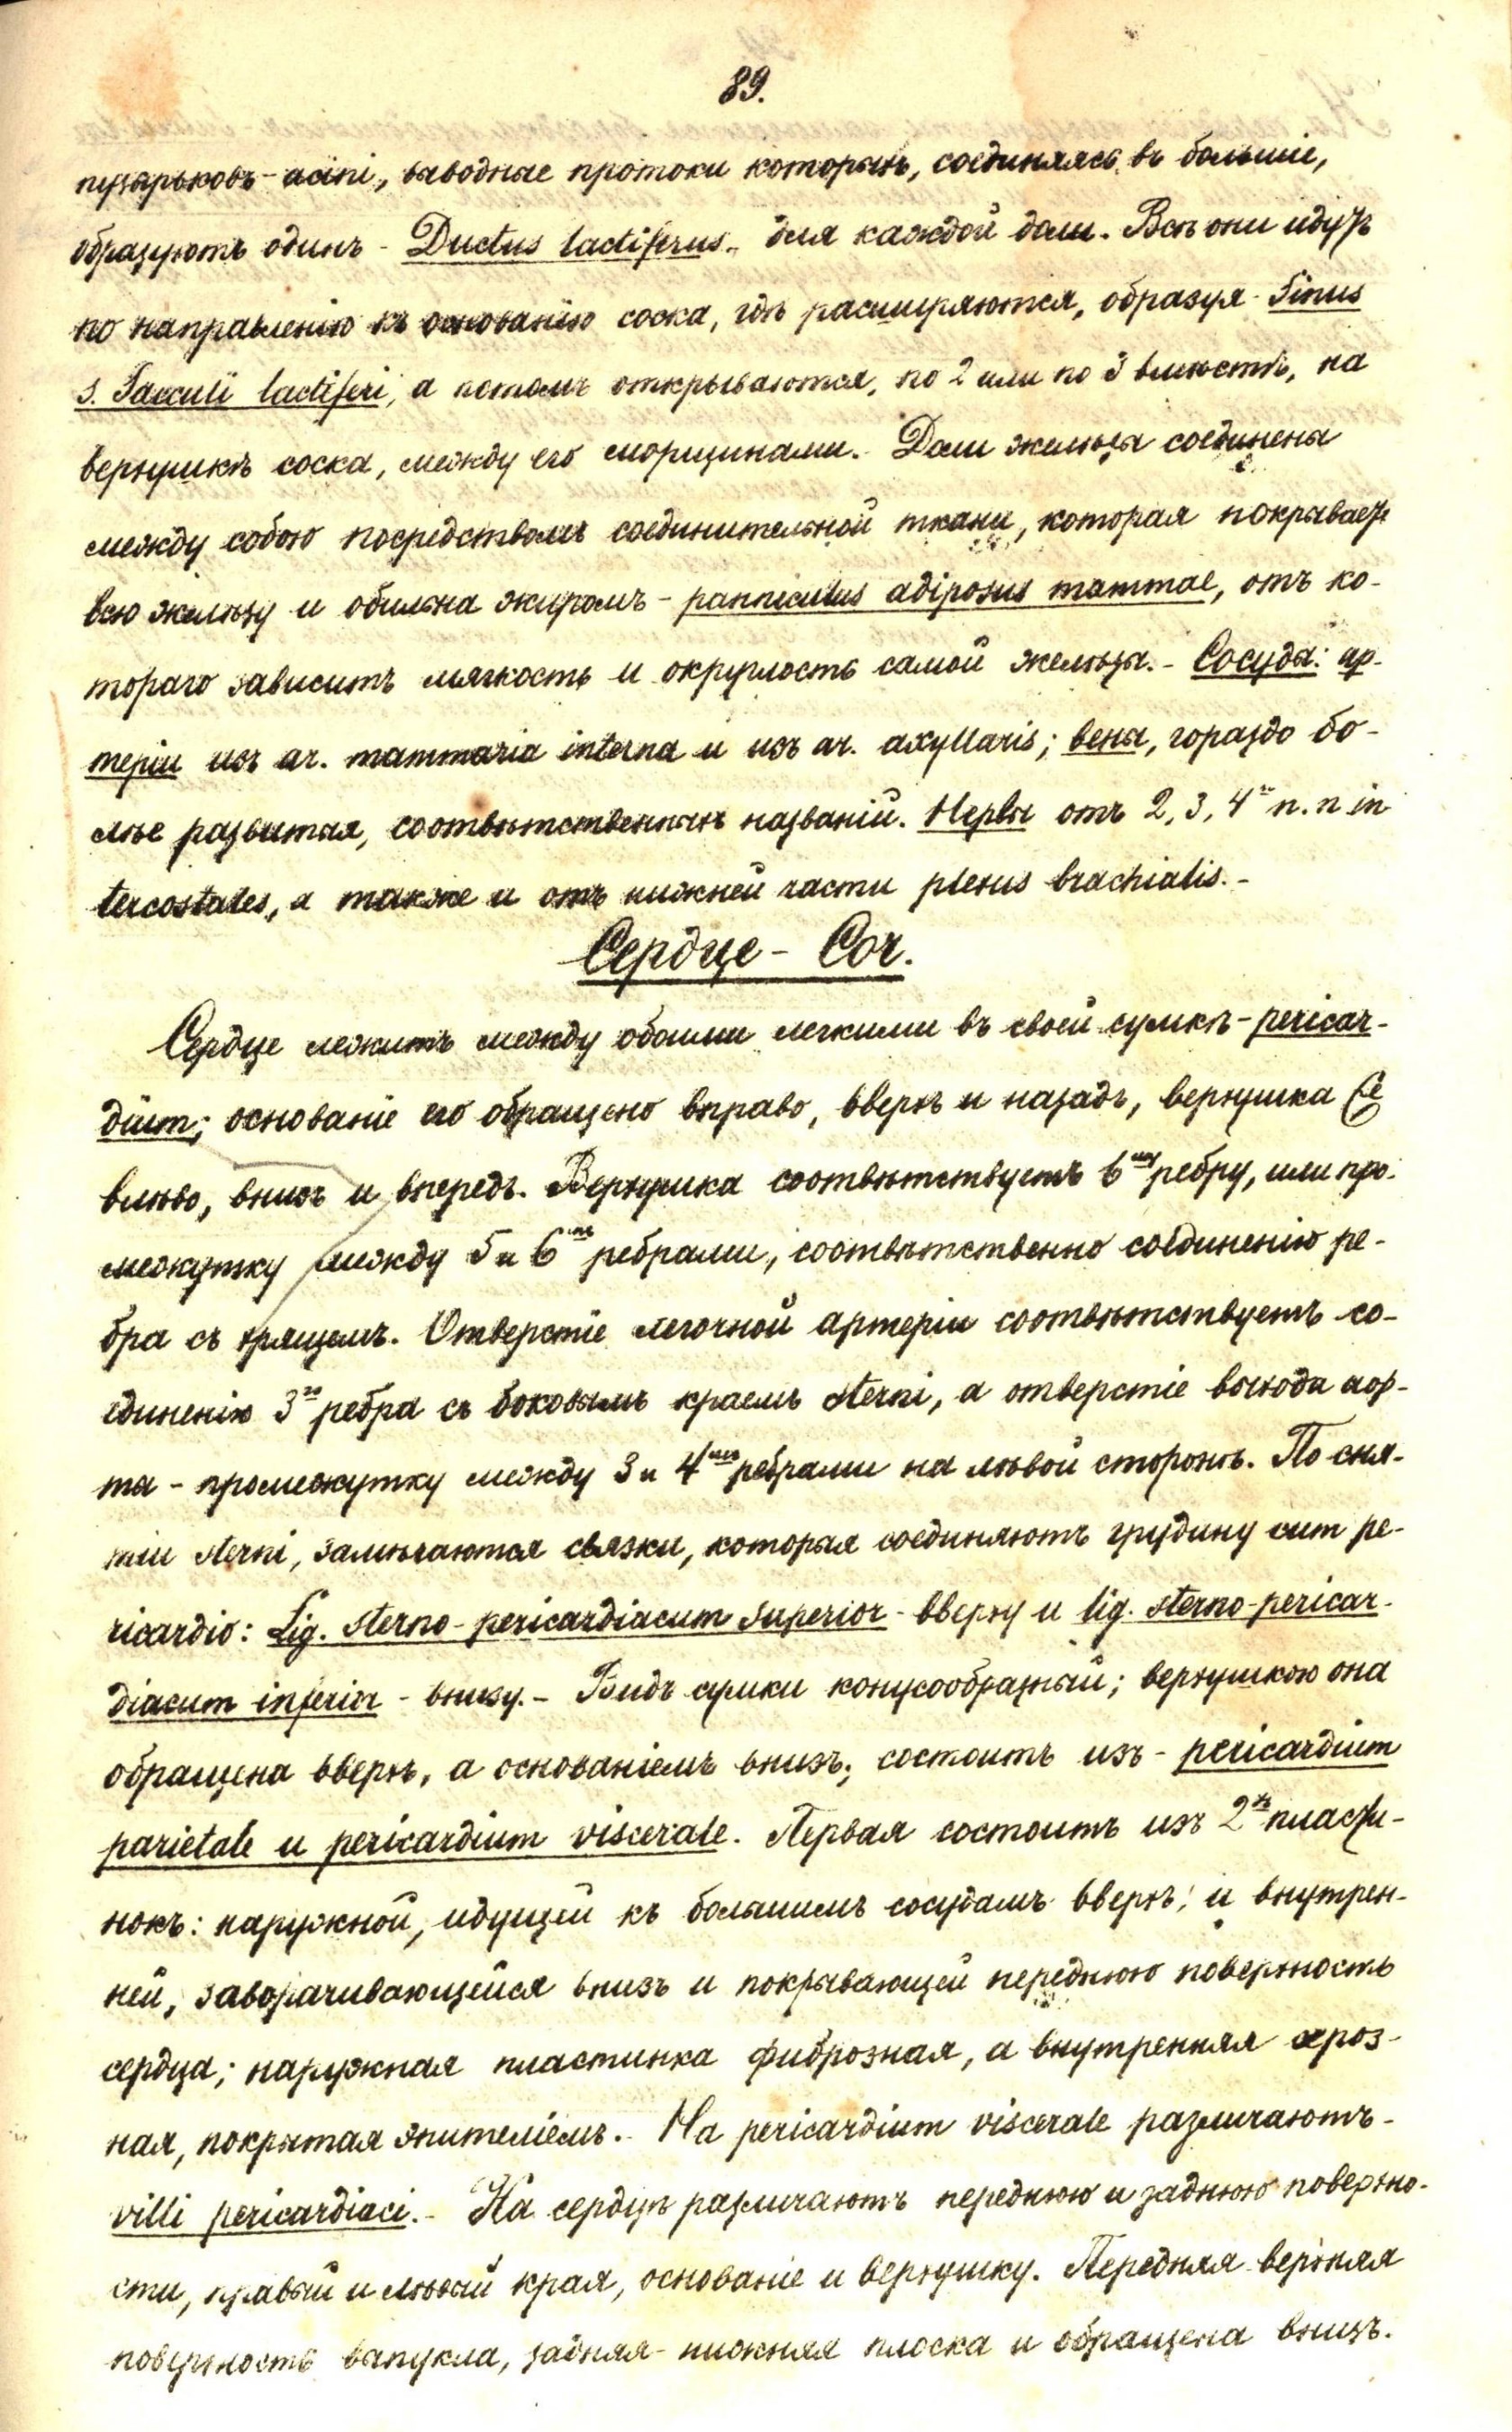 89.
пузырьковъ - acini, выводные протоки которыхъ, соединяясь въ большіе,
образуютъ одинъ - Ductus lactiferus - для каждой доли. Всѣ они идутъ
по направленію къ основанію соска, гдѣ расширяются, образуя - Sinus
s. Sacculi lactiferi, а потомъ открываются, по 2 или по 3 вмѣстѣ, на
верхушкѣ соска, между его морщинами. - Доли железы соединены
между собою посредствомъ соединительной ткани, которая покрываетъ
всю железу и обильна жиромъ - panniculus adiposus mammae, отъ ко-
тораго зависитъ мягкость и округлость самой железы. - Сосуды: ар-
теріи изъ ar. mammaria interna и изъ ar. axyllaris; вены, гораздо бо-
лѣе развитыя, соотвѣтственныхъ названій. Нервы отъ 2, 3, 4го n. n. in
tercostales, а также и отъ нижней части plexus brachialis. -
Сердце - Cor.
Сердце лежитъ между обоими легкими въ своей сумкѣ - pericar-
dium; основаніе его обращено вправо, вверхъ и назадъ, верхушка же
влѣво, внизъ и впередъ. Верхушка соотвѣтствуетъ 6му ребру, или про-
межутку между 5 и 6ми ребрами, соотвѣтственно соединенію ре-
бра съ хрящемъ. Отверстіе легочной артеріи соотвѣтствуетъ со-
единенію 3го ребра съ боковымъ краемъ sterni, а отверстіе выхода аор-
ты - промежутку между 3 и 4ми ребрами на лѣвой сторонѣ. По сня-
тіи sterni, замѣчаются связки, которыя соединяютъ грудину cum pe-
ricardio: Lig. sterno-pericardiacum superior - вверху и lig. sterno-pericar-
diacum inferior - внизу. - Видъ сумки конусообразный; верхушкою она
обращена вверхъ, а основаніемъ внизъ; состоитъ изъ - pericardium
parietale и pericardium viscerale. Первая состоитъ изъ 2хъ пласти-
нокъ: наружной, идущей къ большимъ сосудамъ вверхъ; и внутрен-
ней, заворачивающейся внизъ и покрывающей переднюю поверхность
сердца; наружная пластинка фиброзная, а внутренняя сероз-
ная, покрытая эпителіемъ. - На pericardium viscerale различаютъ -
villi pericardiaci. - На сердцѣ различаютъ переднюю и заднюю поверхно-
сти, правый и лѣвый края, основаніе и верхушку. Передняя - верхняя
поверхность выпукла, задняя - нижняя плоска и обращена внизъ.